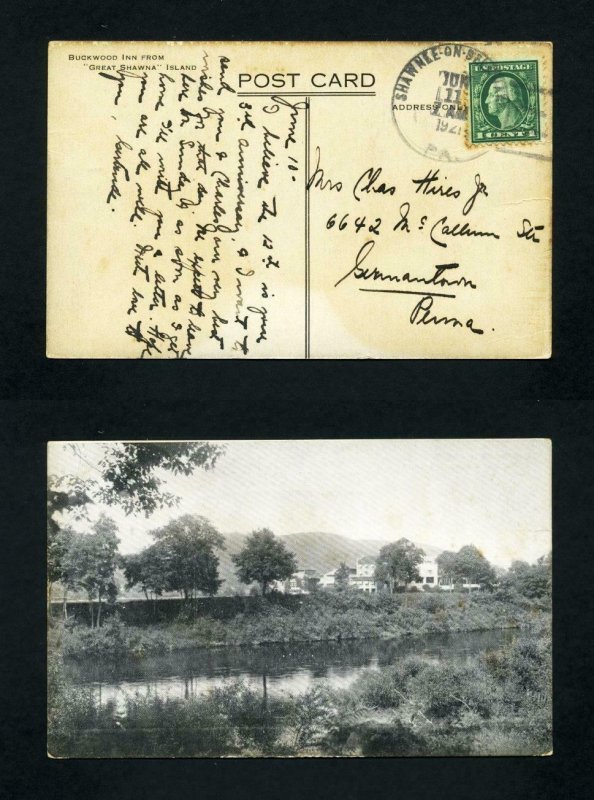 BUCKWOOD INN FROM
"GREAT SHAWNA" ISLAND
POST CARD
ADDRESS ONLY
SHAWNEE-ON-DE
JUN
11
192
PA.
U.S. POSTAGE
1 CENT 1
June 10-
I believe the 12th is your
3rd anniversary, & I want to
send you & Charles our very best
wishes for the day. We expect to leave
here on Sunday & as soon as I get
home I'll write you a letter. Hope
you are all well. Best love to
you, Gertrude.
Mrs Chas Hires Jr
6642 McCallum Str
Germantown
Penna.